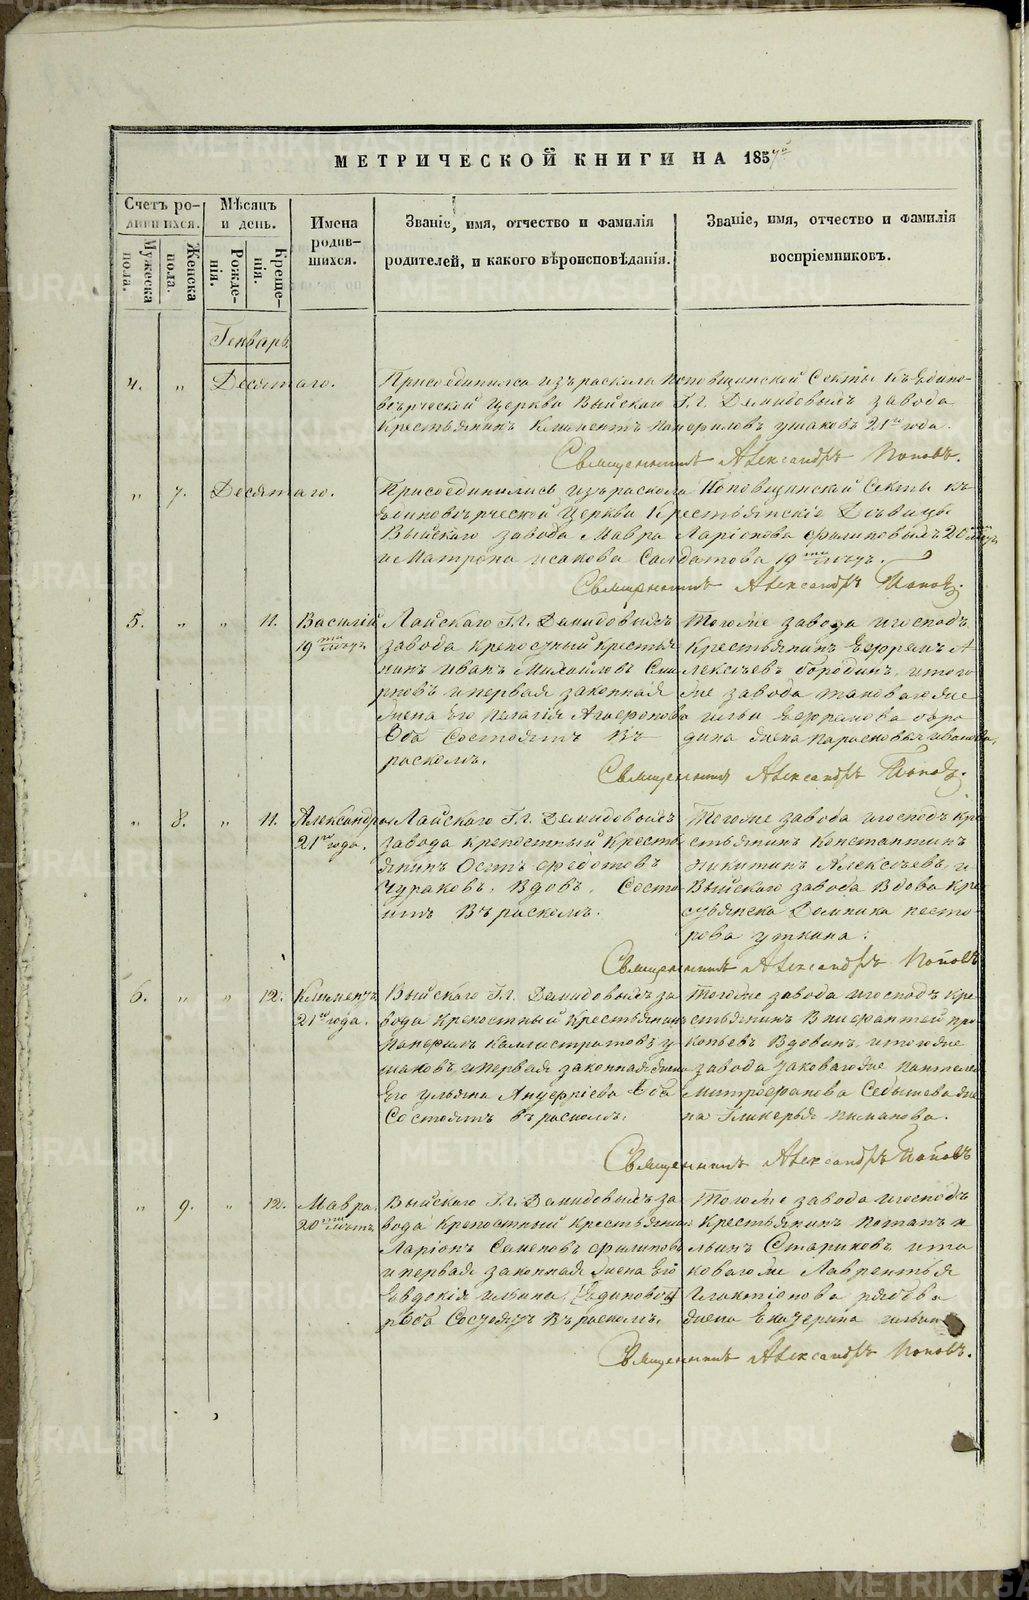 МЕТРИЧЕСКОЙ КНИГИ НА 1857й
Счетъ ро-
дившихся.
Мужеска
пола.
Женска
пола.
Мѣсяцъ
и день.
Рожде-
нія.
Креще-
нія.
Имена
родив-
шихся.
Званіе, имя, отчество и фамилія
родителей, и какого вѣроисповѣданія.
Званіе, имя, отчество и фамилія
воспріемниковъ.
Генварь
4. " Десятаго.
Присоединился изъ раскола поповщинской Секты къ Едино-
вѣрческой Церкви Выйскаго Г.г. Демидовыхъ завода
Крестьянинъ Климентъ Панфиловъ Ушаковъ 21го года.
Священникъ Александръ Поповъ.
" 7. Десятаго.
Присоединились изъ раскола Поповщинской Секты къ
Единовѣрческой Церкви Крестьянскіе Дѣвицы
Выйскаго завода Мавра Ларіонова Филиповыхъ 20ти лѣтъ
и Матрона Исакова Солдатова 19ти лѣтъ.
Священникъ Александръ Поповъ.
5. " " 11.
Василій
19ти лѣтъ
Лайскаго Г.г. Демидовыхъ
завода крепосный крестья
нинъ Иванъ Михайловъ Сми
рновъ и первая законная
жена Его Пелагія Агафонова
Оба Состоятъ Въ
расколѣ.
Тогоже завода и господъ
Крестьянинъ Ефремъ А
лексѣевъ Бородинъ, и того
же завода таковагоже
Ильи Ефремова Боро
дина жена Парасковья Иванова,
Священникъ Александръ Поповъ.
" 8. " 11.
Александра
21го года.
Лайскаго Г.г. Демидовыхъ
завода крепостный Кресть
янинъ Осипъ Федотовъ
Чураковъ, Вдовъ, Состо
итъ Въ расколѣ.
Тогоже завода и господъ Кре
стьянинъ Константинъ
Никитинъ Алексѣевъ, и
Выйскаго завода Вдова кре
стьянска Домника Несто
рова Уткина.
Священникъ Александръ Поповъ
6. " " 12.
Климентъ
21го года.
Выйскаго Г.г. Демидовыхъ за
вода Крепостный Крестьянинъ
Панфилъ Калистратовъ У
шаковъ, и первая законная жена
Его Ульяна Ануфріева Оба
Состоятъ въ расколѣ.
Тогоже завода и господъ Кре
стьянинъ Внифантей Про
копьевъ Вдовинъ, и тогоже
завода таковагоже Пантеле
Митрофанова Седышева же
на Гликерья Пиманова.
Священникъ Александръ Поповъ
" 9. " 12.
Мавра.
20ти лѣтъ
Выйскаго Г.г. Демидовыхъ за
вода Крепостный Крестьянинъ
Ларіонъ Семеновъ Филиповъ
и первая законная жена Его
Евдокія Ильина,
Оба Состоятъ Въ расколѣ,
Тогоже завода и господъ
Крестьянинъ Потапъ И
льинъ Стариковъ и та
ковагоже Лаврентья
Рябова
жена Екатерина
Священникъ Александръ Поповъ.
METRIKI.GASO-URAL.RU